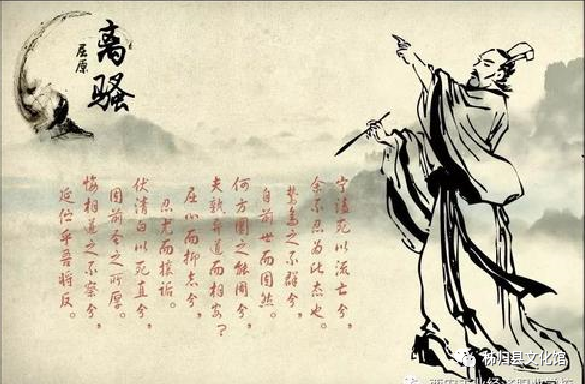 离骚
屈原
宁溘死以流亡兮，
余不忍为此态也。
鸷鸟之不群兮，
自前世而固然。
何方圜之能周兮，
夫孰异道而相安？
屈心而抑志兮，
忍尤而攘诟。
伏清白以死直兮，
固前圣之所厚。
悔相道之不察兮，
延伫乎吾将反。
秭归县文化馆